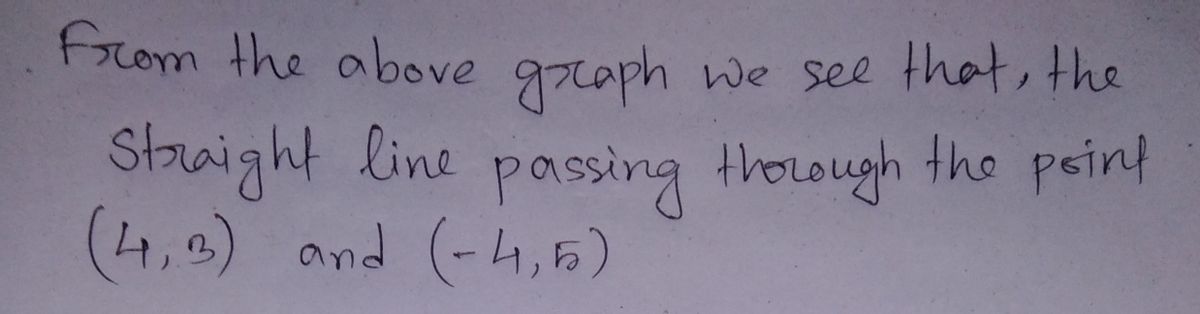 From the above graph we see that, the
Straight line passing through the point
(4,3) and (-4,5)